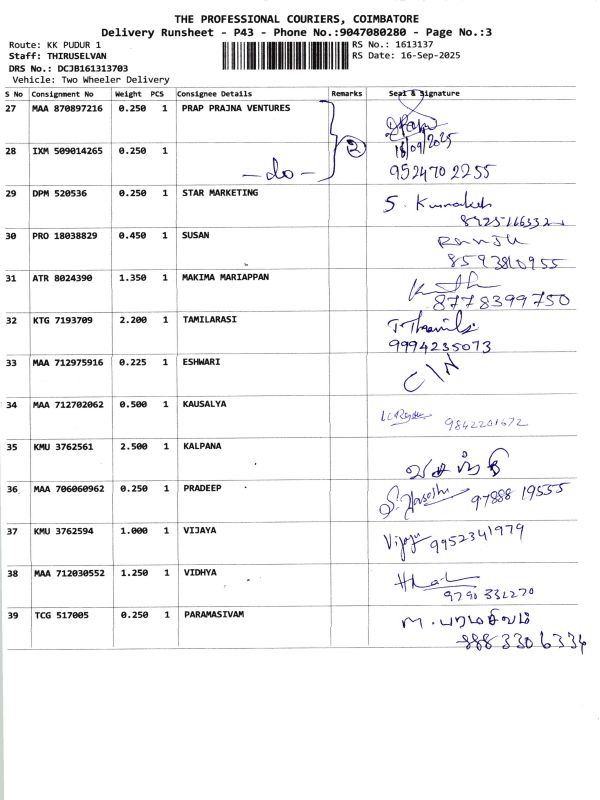 THE PROFESSIONAL COURIERS, COIMBATORE
Delivery Runsheet - P43 - Phone No.:9047080280 - Page No.:3
Route: KK PUDUR 1 RS No.: 1613137
Staff: THIRUSELVAN RS Date: 16-Sep-2025
DRS No.: DCJB161313703
Vehicle: Two Wheeler Delivery
S No Consignment No Weight PCS Consignee Details Remarks Seal & Signature
27 MAA 870897216 0.250 1 PRAP PRAJNA VENTURES
16/09/2025
28 IXM 509014265 0.250 1 2
-do- 9524702255
29 DPM 520536 0.250 1 STAR MARKETING
30 PRO 18038829 0.450 1 SUSAN
8593810955
31 ATR 8024390 1.350 1 MAKIMA MARIAPPAN
8778399750
32 KTG 7193709 2.200 1 TAMILARASI
9994235073
33 MAA 712975916 0.225 1 ESHWARI
34 MAA 712702062 0.500 1 KAUSALYA
9842201672
35 KMU 3762561 2.500 1 KALPANA
36 MAA 706060962 0.250 1 PRADEEP 97888 19555
37 KMU 3762594 1.000 1 VIJAYA Vijaya 9952341979
38 MAA 712030552 1.250 1 VIDHYA
9790332270
39 TCG 517005 0.250 1 PARAMASIVAM M. பரமசிவம்
8883306334